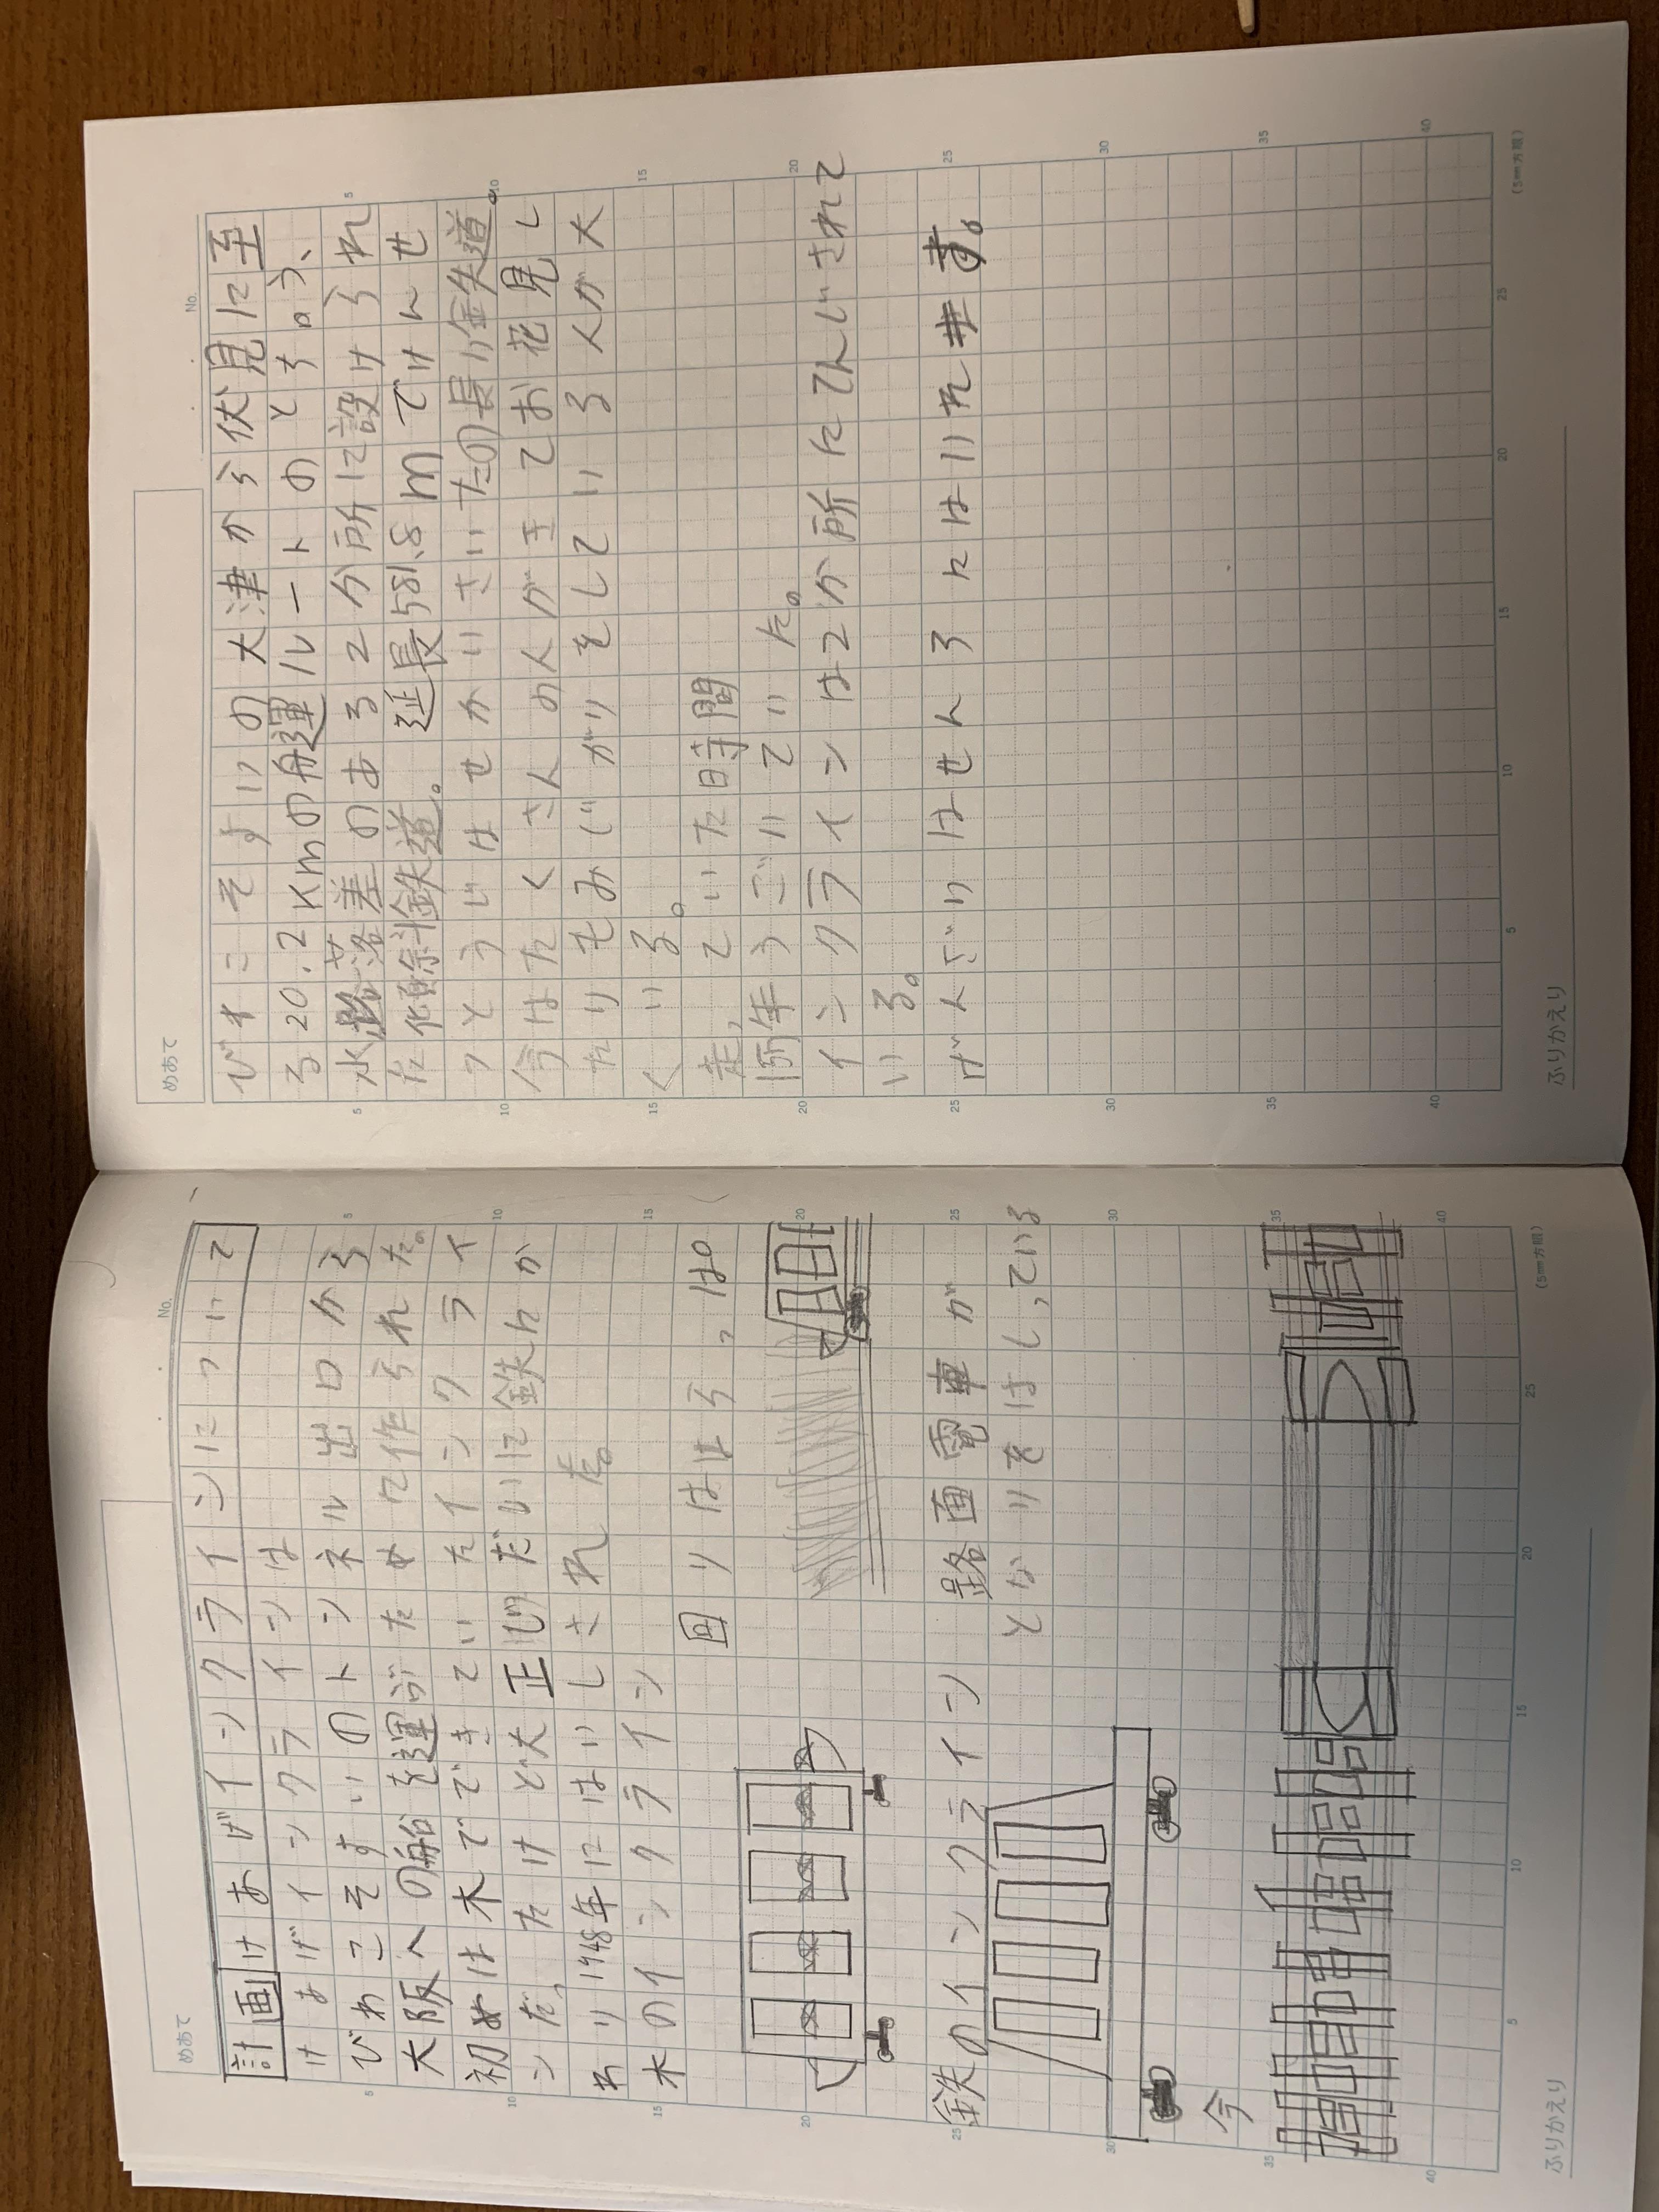 めあて
No.
計画 けあげインクラインについて
けあげインクラインは
びわこそすいのトンネル出口から
大阪への船を運ぶために作られた。
初めは木でできていたインクライ
ンだったけど大正じだいに鉄にか
わり1948年にはいしされた。
木のインクライン
回りははらっぱ
鉄のインクライン 路面電車が
となりをはしっている
今
ふりかえり
(5mm方眼)
めあて
No.
びわこそすいの大津から伏見に至
る20.2Kmの舟運ルートのとちゅう、
水路落差のある2か所に設けられ
た傾斜鉄道。 延長581.8mでけんせ
つとうじはせかいさいたの長い鉄道。
今はたくさんの人がきてお花見し
たりもみじがりをしている人が大
くいる。
走っていた時間
15年うごいていた。
インクラインは2か所にてんじされて
いる。
げんざいはせんろにはいれます。
ふりかえり
(5mm方眼)